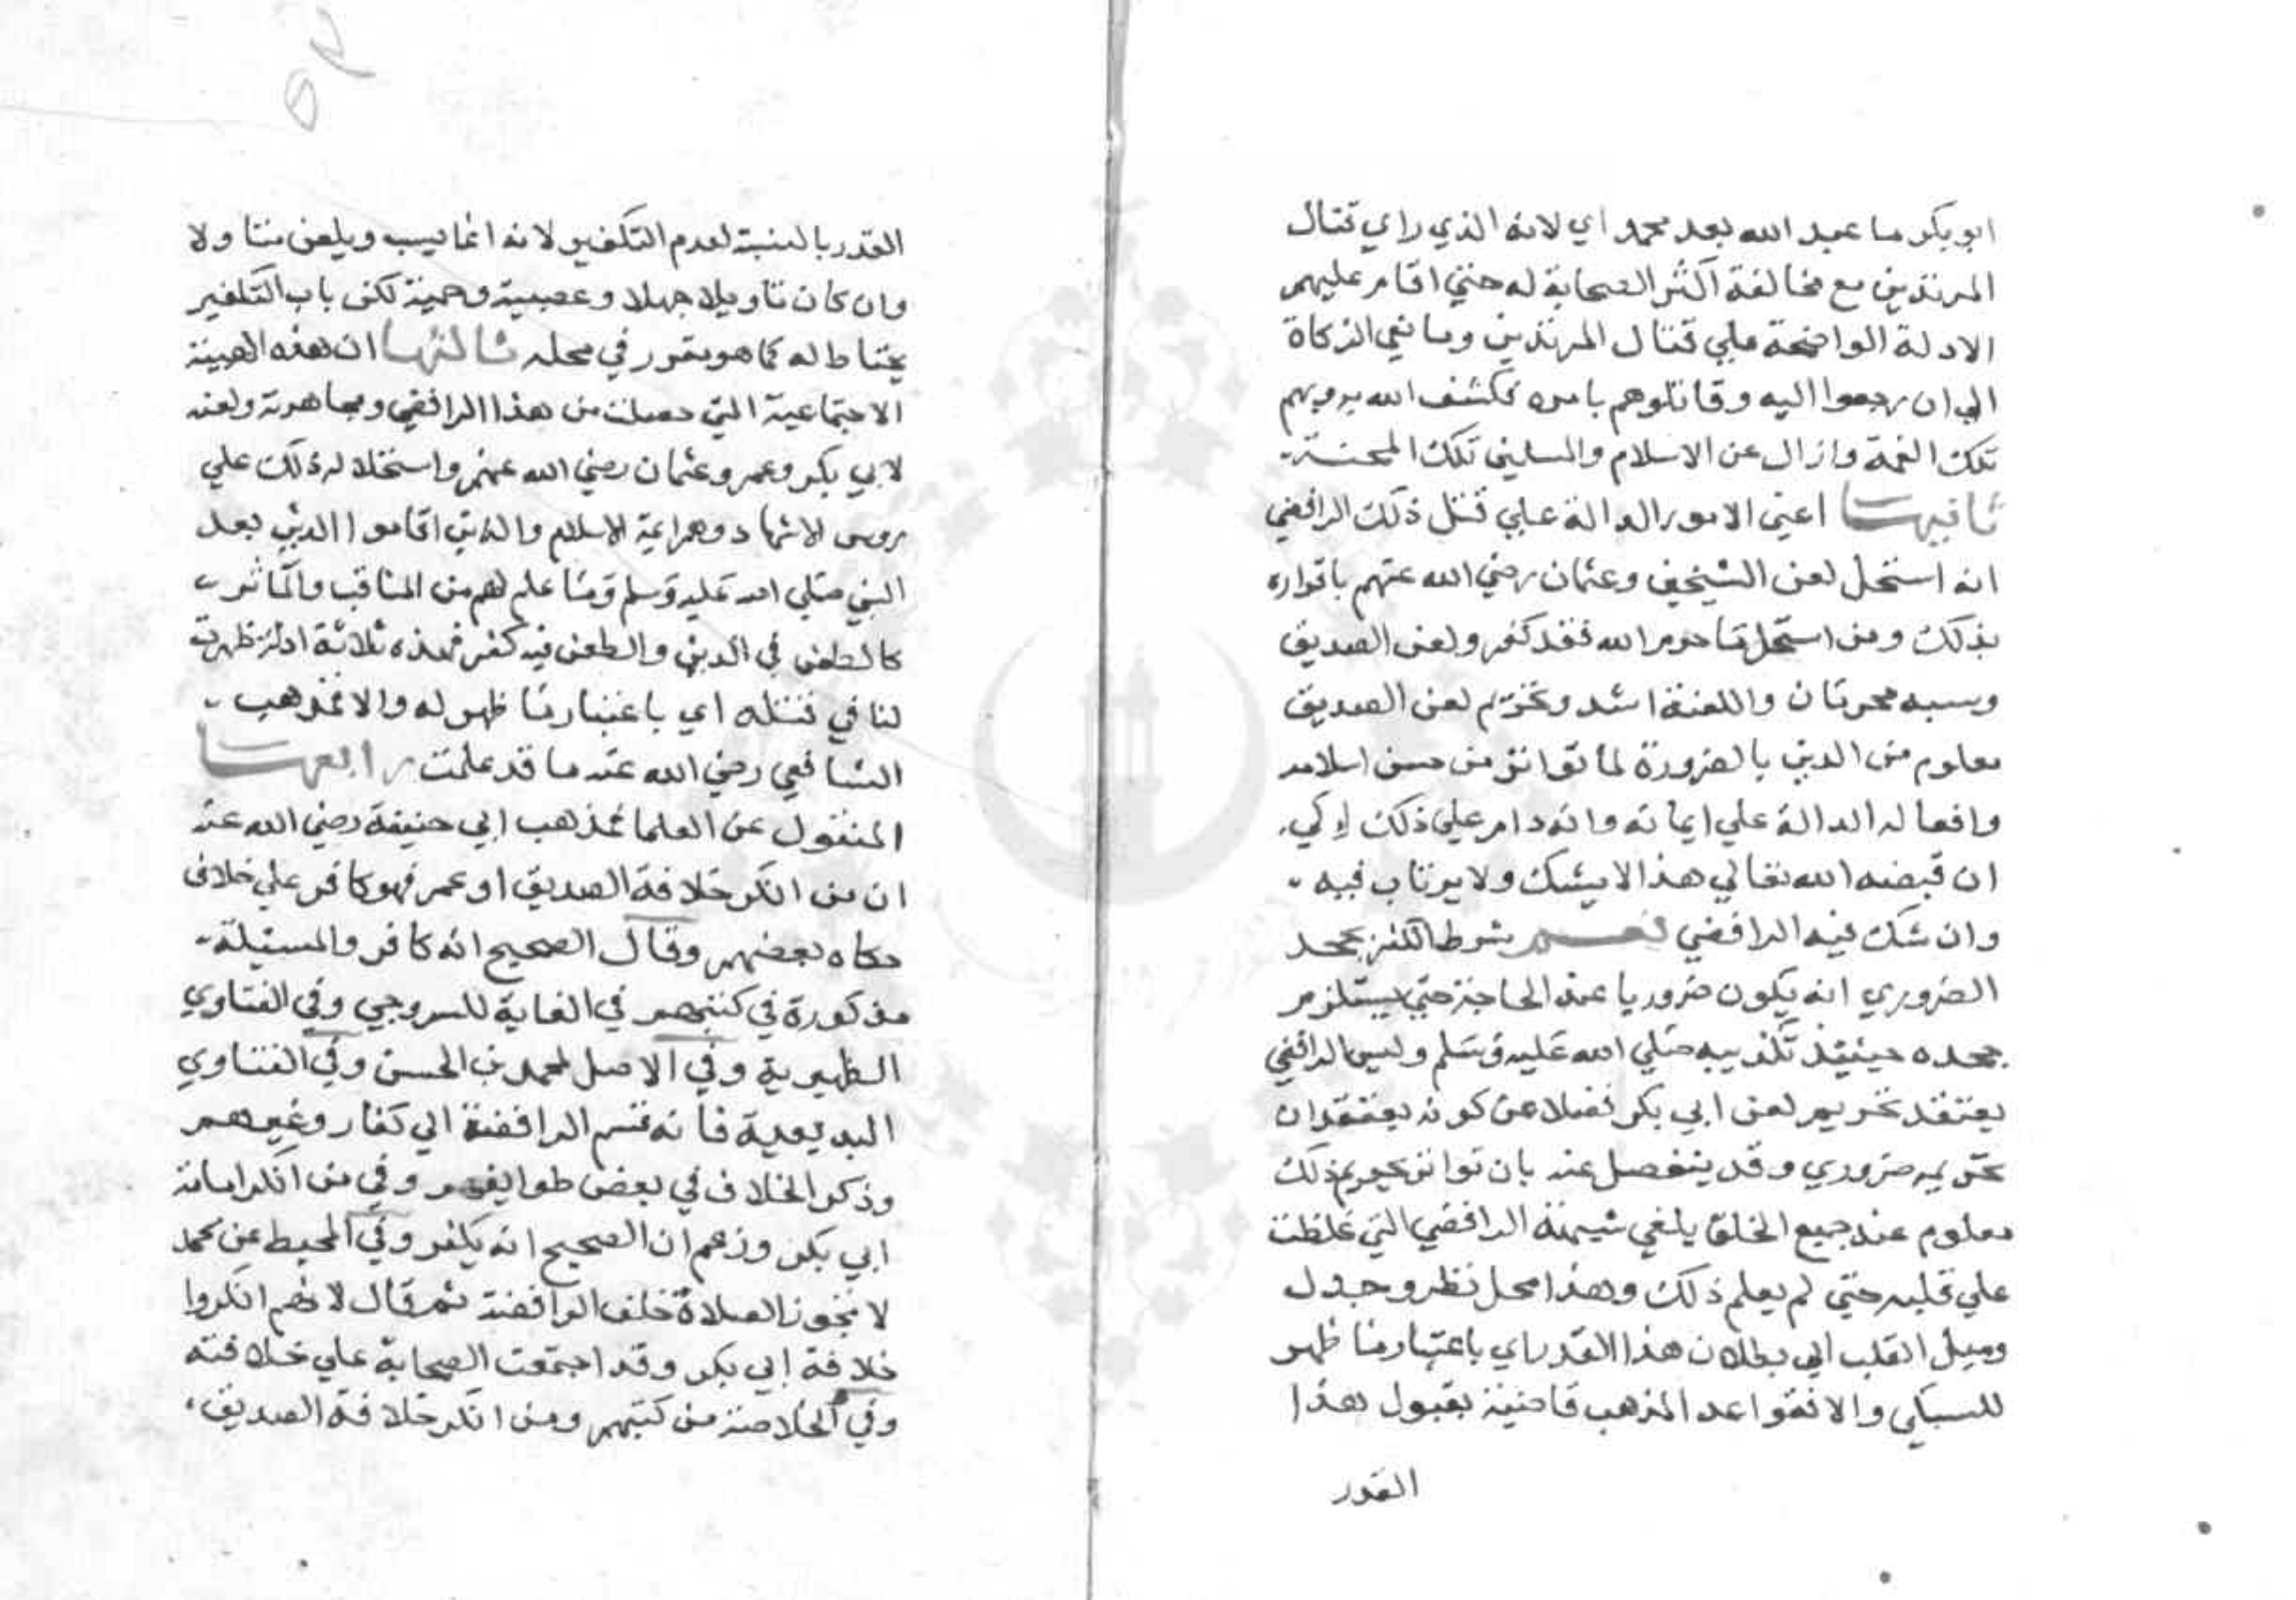 ابو بكر ما عبد الله بعد محمد اي لانه الذي راي قتال
المرتدين مع مخالفة اكثر الصحابة له حتي اقام عليهم
الادلة الواضحة علي قتال المرتدين ومانعي الزكاة
الي ان رجعوا اليه وقاتلوهم بامره فكشف الله به وبهم
تلك الغمة وازال عن الاسلام والمسلمين تلك المحنة
ثانيها اعني الامور الدالة علي قتل ذلك الرافضي
انه استحل لعن الشيخين وعثمان رضي الله عنهم باقراره
بذلك ومن استحل ما حرم الله فقد كفر ولعن الصديق
وسبه محرمان واللعنة اشد وتحريم لعن الصديق
معلوم من الدين بالضرورة لما تواتر من حسن اسلامه
وافعاله الدالة علي ايمانه وانه دام علي ذلك الي
ان قبضه الله تعالي هذا لا يشك ولا يرتاب فيه
وان شك فيه الرافضي نعم شرط الكفر بجحد
الضروري انه يكون ضروريا عند الجاحد حتي يستلزم
جحده حينئذ تكذيبه صلي الله عليه وسلم وليس الرافضي
يعتقد تحريم لعن ابي بكر فضلا عن كونه يعتقد ان
تحريمه ضروري وقد ينفصل عنه بان تواتر تحريم ذلك
معلوم عند جميع الخلق يلغي شبهة الرافضي التي غلظت
علي قلبه حتي لم يعلم ذلك وهذا محل نظر وجدل
وميل القلب الي بطلان هذا القدر اي باعتبار ما ظهر
للسبكي والا فقواعد المذهب قاضية بقبول هذا
القدر
القدر بالنسبة لعدم التكفير لانه انما يسب ويلعن متاولا
وان كان تاويلا جهلا وعصبية وحمية لكن باب التكفير
يحتاط له كما هو مقرر في محله ثالثها ان هذه الهيئة
الاجتماعية التي حصلت من هذا الرافضي ومجاهرته ولعنه
لابي بكر وعمر وعثمان رضي الله عنهم واستحلاله ذلك علي
روس الاشهاد وهم ايمة الاسلام والذين اقاموا الدين بعد
النبي صلي الله عليه وسلم وما علم لهم من المناقب والمآثر
كالطعن في الدين والطعن فيه كفر فهذه ثلاثة ادلة ظهرت
لنا في قتله اي باعتبار ما ظهر له والا فمذهب
الشافعي رضي الله عنه ما قد علمت رابعها
المنقول عن العلما فمذهب ابي حنيفة رضي الله عنه
ان من انكر خلافة الصديق او عمر فهو كافر علي خلاف
حكاه بعضهم وقال الصحيح انه كافر والمسئلة
مذكورة في كتبهم في الغاية للسروجي وفي الفتاوي
الظهيرية وفي الاصل لمحمد بن الحسن وفي الفتاوي
البديعية فانه قسم الرافضة الي كفار وغيرهم
وذكر الخلاف في بعض طوايفهم وفي من انكر امامة
ابي بكر وزعم ان الصحيح انه يكفر وفي المحيط عن محمد
لا تجوز الصلاة خلف الرافضة ثم قال لانهم انكروا
خلافة ابي بكر وقد اجتمعت الصحابة علي خلافته
وفي الخلاصة من كتبهم ومن انكر خلافة الصديق